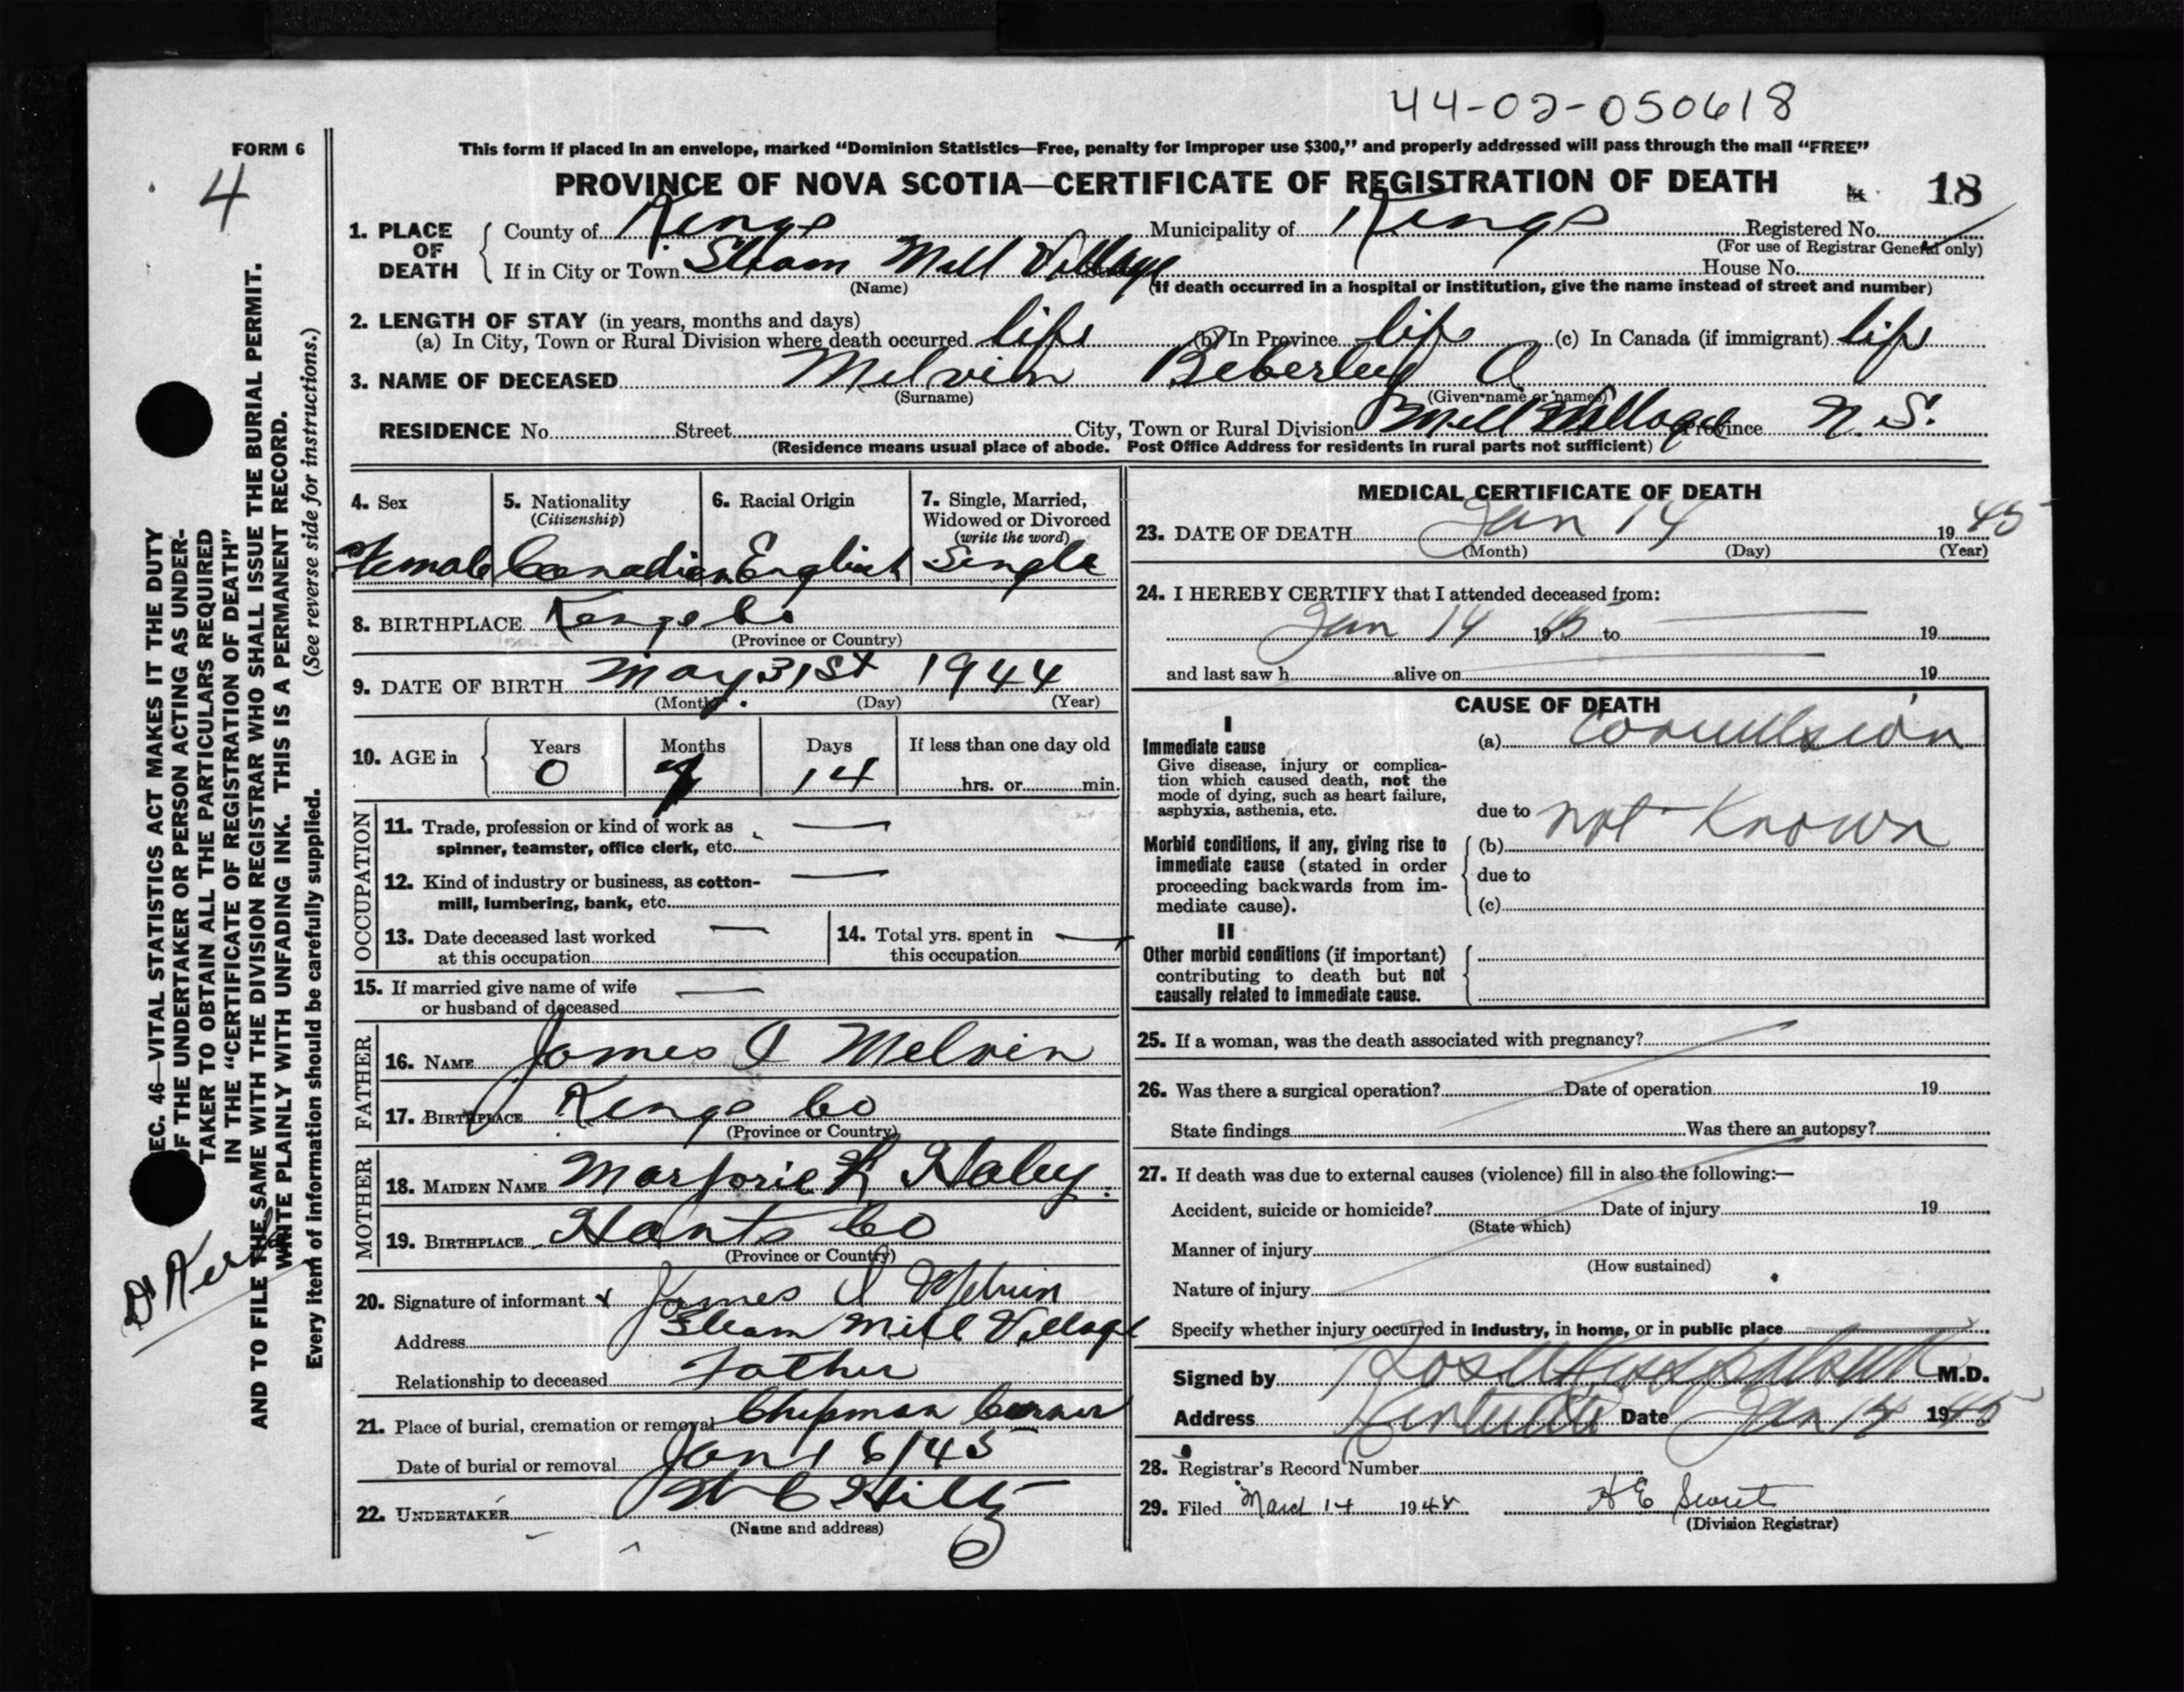 44-02-050618
FORM 6
4
This form if placed in an envelope, marked “Dominion Statistics—Free, penalty for improper use $300,” and properly addressed will pass through the mail “FREE”
PROVINCE OF NOVA SCOTIA—CERTIFICATE OF REGISTRATION OF DEATH
18
1. PLACE OF DEATH
County of Kings Municipality of Kings Registered No.
(For use of Registrar General only)
If in City or Town Steam Mill Village House No.
(Name) (If death occurred in a hospital or institution, give the name instead of street and number)
2. LENGTH OF STAY (in years, months and days)
(a) In City, Town or Rural Division where death occurred life (b) In Province life (c) In Canada (if immigrant) life
3. NAME OF DECEASED Melvin Beberley A
(Surname) (Given name or names)
RESIDENCE No. Street City, Town or Rural Division Mill Village Province N.S.
(Residence means usual place of abode. Post Office Address for residents in rural parts not sufficient)
4. Sex
Female
5. Nationality
(Citizenship)
Canadian
6. Racial Origin
English
7. Single, Married,
Widowed or Divorced
(write the word)
Single
8. BIRTHPLACE Kings Co
(Province or Country)
9. DATE OF BIRTH May 31st 1944
(Month) (Day) (Year)
10. AGE in
Years Months Days If less than one day old
0 7 14 hrs. or min.
OCCUPATION
11. Trade, profession or kind of work as
spinner, teamster, office clerk, etc.
12. Kind of industry or business, as cotton-
mill, lumbering, bank, etc.
13. Date deceased last worked
at this occupation
14. Total yrs. spent in
this occupation
15. If married give name of wife
or husband of deceased
FATHER
16. NAME James I Melvin
17. BIRTHPLACE Kings Co
(Province or Country)
MOTHER
18. MAIDEN NAME Marjorie K Haley.
19. BIRTHPLACE Hants Co
(Province or Country)
20. Signature of informant x James I Melvin
Address Steam Mill Village
Relationship to deceased Father
21. Place of burial, cremation or removal Chipman Corner
Date of burial or removal Jan 16/45
22. UNDERTAKER W C Hiltz
(Name and address)
MEDICAL CERTIFICATE OF DEATH
23. DATE OF DEATH Jan 14 1945
(Month) (Day) (Year)
24. I HEREBY CERTIFY that I attended deceased from:
Jan 14 1945 to 19
and last saw h alive on 19
CAUSE OF DEATH
I
Immediate cause
Give disease, injury or complica-
tion which caused death, not the
mode of dying, such as heart failure,
asphyxia, asthenia, etc.
(a) Convulsion
due to not known
Morbid conditions, if any, giving rise to
immediate cause (stated in order
proceeding backwards from im-
mediate cause).
(b)
due to
(c)
II
Other morbid conditions (if important)
contributing to death but not
causally related to immediate cause.
25. If a woman, was the death associated with pregnancy?
26. Was there a surgical operation? Date of operation 19
State findings Was there an autopsy?
27. If death was due to external causes (violence) fill in also the following:—
Accident, suicide or homicide? Date of injury 19
(State which)
Manner of injury
(How sustained)
Nature of injury
Specify whether injury occurred in industry, in home, or in public place
Signed by M.D.
Address Kentville Date Jan 14 1945
28. Registrar's Record Number
29. Filed March 14 194
(Division Registrar)
EC. 46—VITAL STATISTICS ACT MAKES IT THE DUTY
OF THE UNDERTAKER OR PERSON ACTING AS UNDER-
TAKER TO OBTAIN ALL THE PARTICULARS REQUIRED
IN THE “CERTIFICATE OF REGISTRATION OF DEATH”
AND TO FILE THE SAME WITH THE DIVISION REGISTRAR WHO SHALL ISSUE THE BURIAL PERMIT.
WRITE PLAINLY WITH UNFADING INK. THIS IS A PERMANENT RECORD.
Every item of information should be carefully supplied. (See reverse side for instructions.)